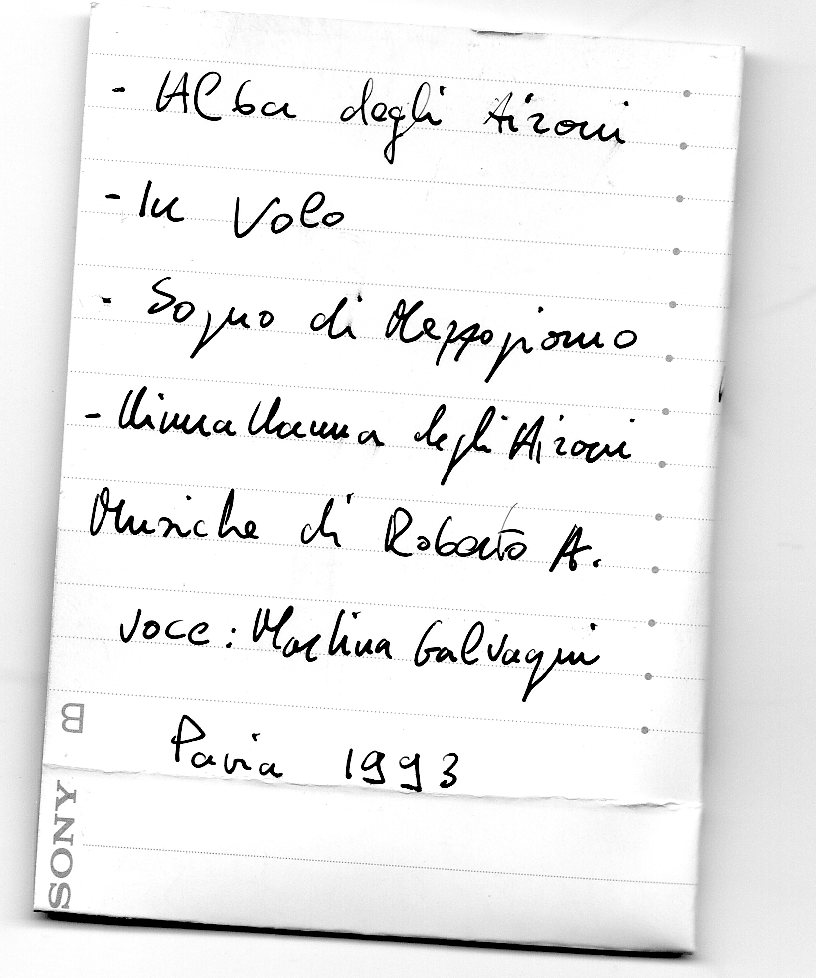 - Alba degli Aironi
- In Volo
- Sogno di Mezzogiorno
- Ninna Nanna degli Aironi
Musiche di Roberto A.
voce: Martina Galvagni
Pavia 1993
B
SONY